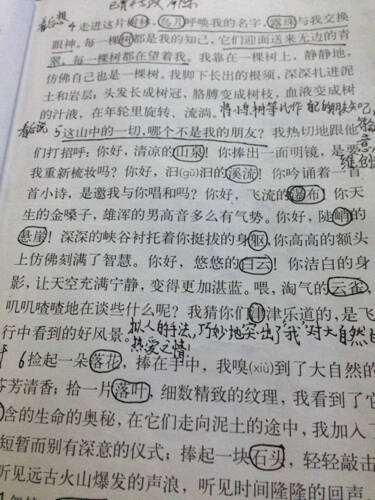 看后想
4 走进这片树林,鸟儿呼唤我的名字,露珠与我交换
眼神。每一棵树都是我的知己,它们迎面送来无边的青
翠,每一棵树都在望着我。我靠在一棵树上,静静地,
仿佛自己也是一棵树。我脚下长出的根须,深深扎进泥
土和岩层;头发长成树冠,胳膊变成树枝,血液变成树
的汁液,在年轮里旋转、流淌。 将小树树林等比作
看后说 5 这山中的一切,哪个不是我的朋友?我热切地跟他
们打招呼:你好,清凉的山泉!你捧出一面明镜,是要
我重新梳妆吗?你好,汩(gǔ)汩的溪流!你吟诵着一首
首小诗,是邀我与你唱和吗?你好,飞流的瀑布!你天
生的金嗓子,雄浑的男高音多么有气势。你好,陡峭的
悬崖!深深的峡谷衬托着你挺拔的身躯,你高高的额头
上仿佛刻满了智慧。你好,悠悠的白云!你洁白的身
影,让天空充满宁静,变得更加湛蓝。喂,淘气的云雀,
叽叽喳喳地在谈些什么呢?我猜你们津津乐道的,是飞
行中看到的好风景。 拟人的手法,巧妙地突出了"我"对大自然的
热爱之情!
6 捡起一朵落花,捧在手中,我嗅(xiù)到了大自然的
芬芳清香;拾一片落叶,细数精致的纹理,我看到了它
含的生命的奥秘,在它们走向泥土的途中,我加入了
短暂而别有深意的仪式;捧起一块石头,轻轻敲击
听见远古火山爆发的声浪,听见时间隆隆的回声